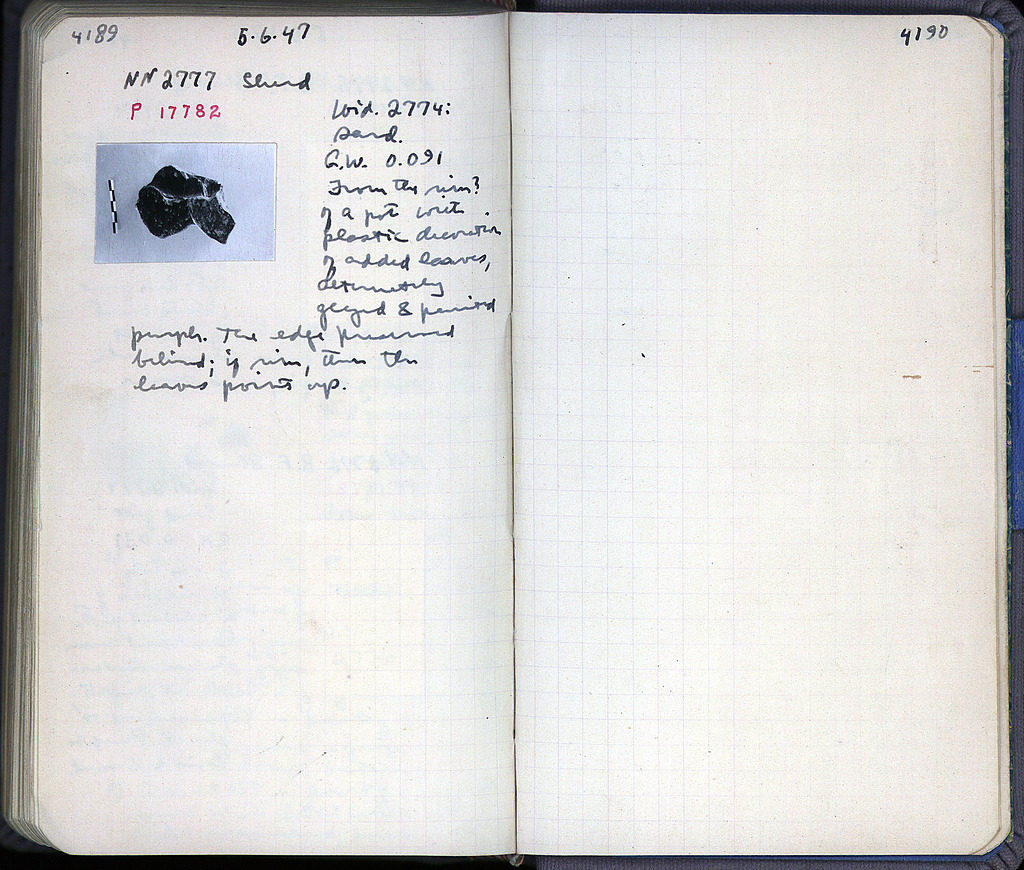 4189
5.6.47
4190
NN 2777 Sherd
P 17782
Wid. 2774:
Sand.
G.W. 0.091
From the rim?
of a pot with
plastic decoration
of added leaves,
alternately
glazed & painted
purple. The edge preserved
behind; if rim, then the
leaves point up.